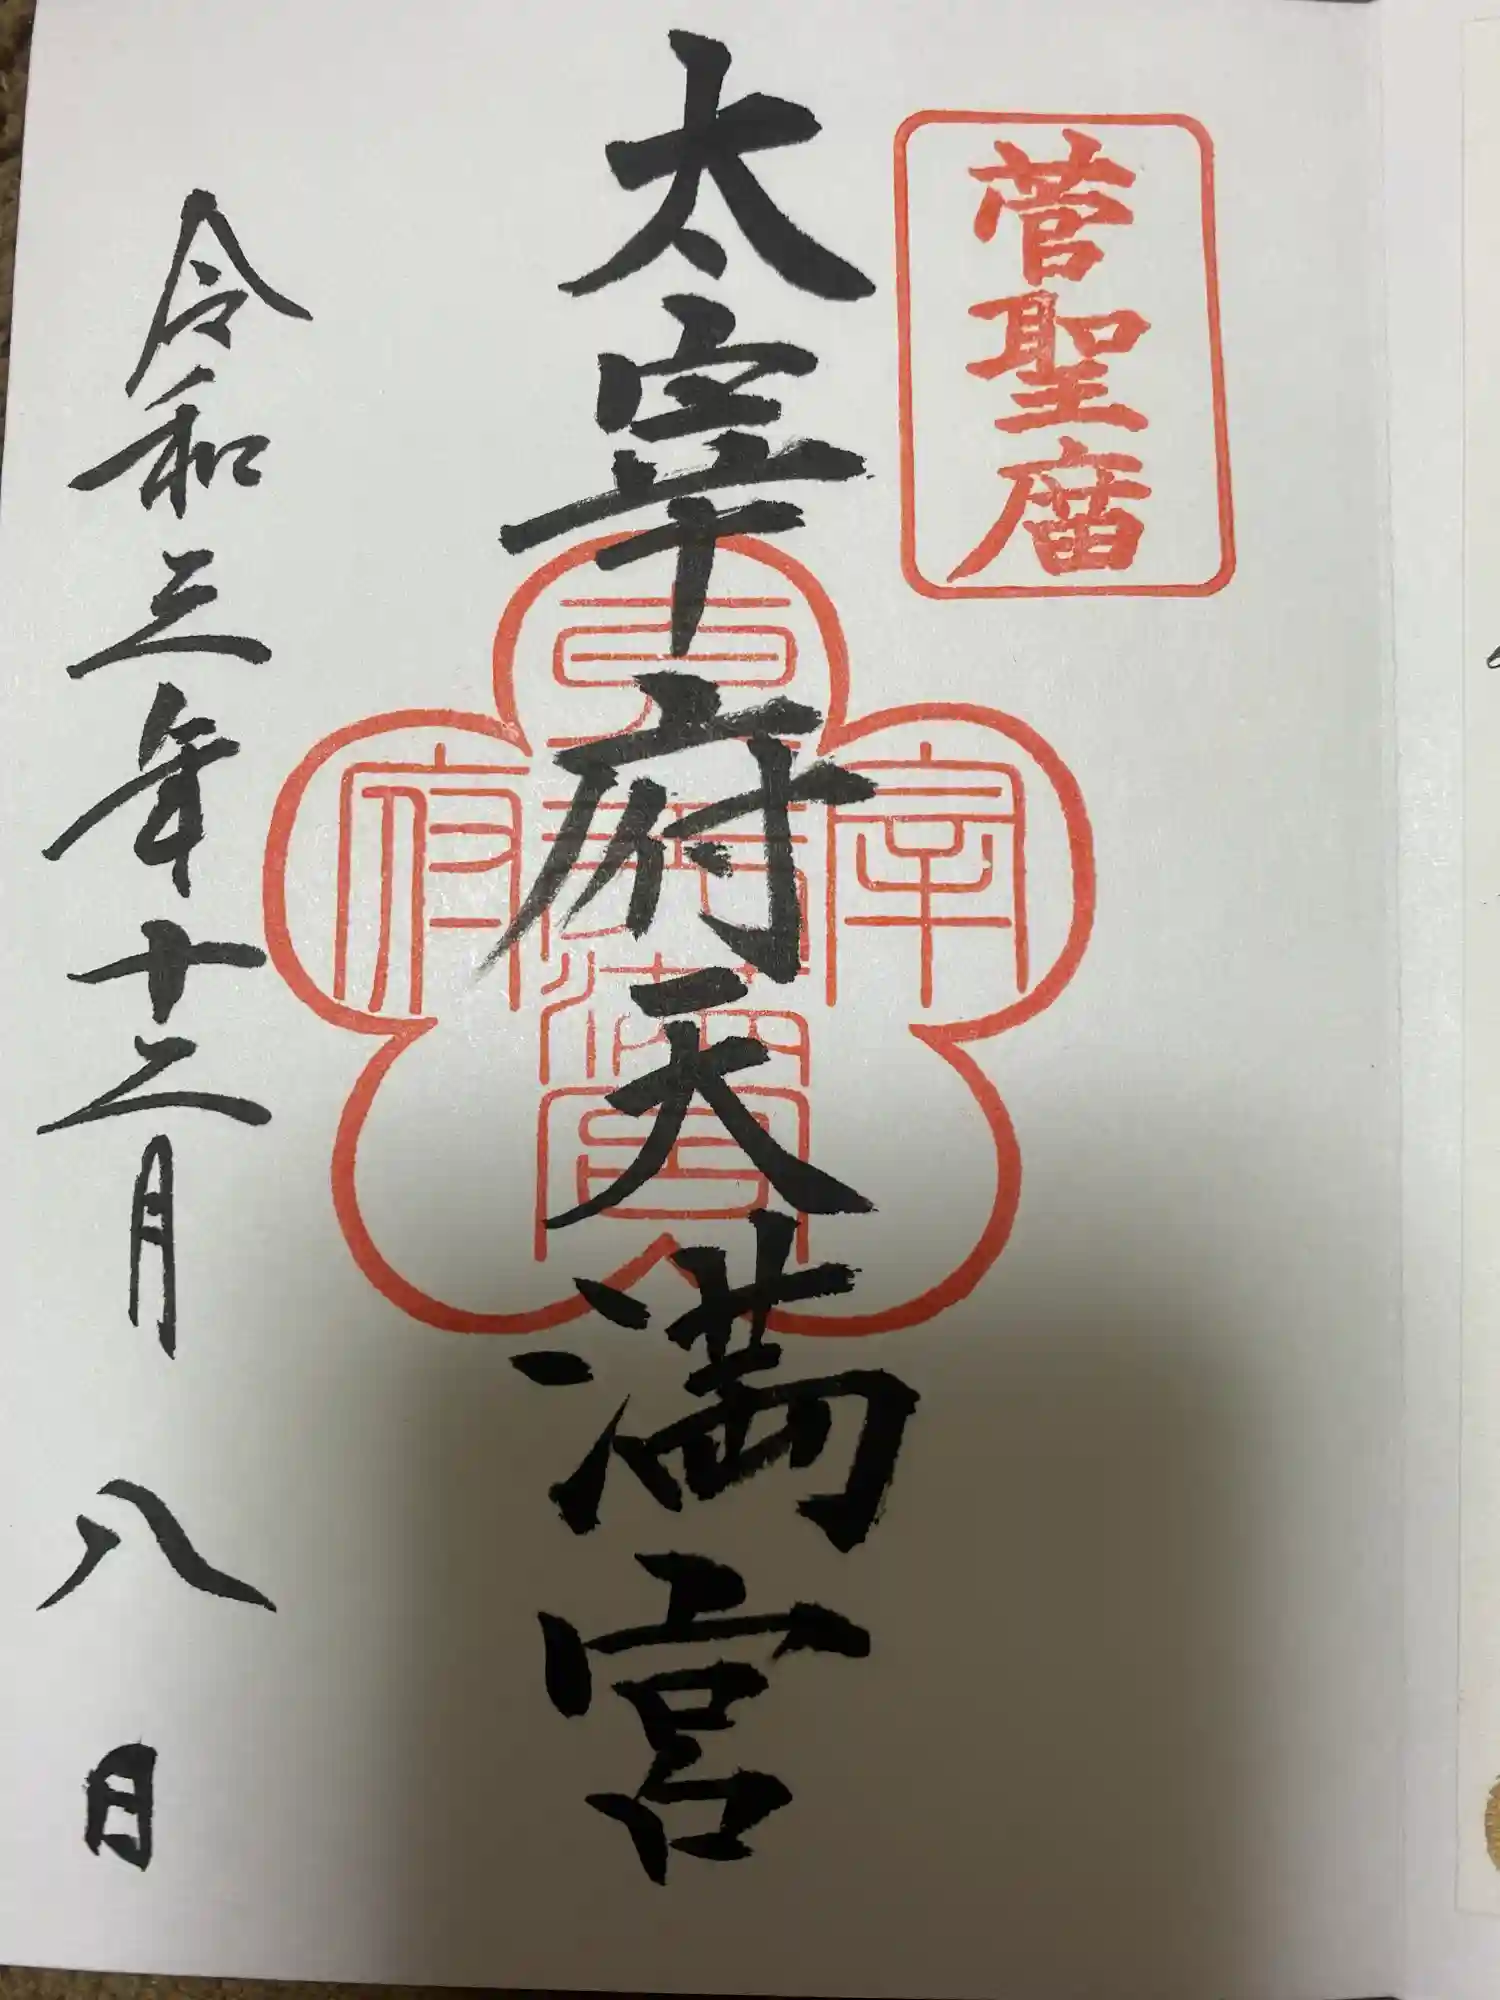 菅聖庿
太宰府天満宮
太宰府天満宮
令和三年十二月八日